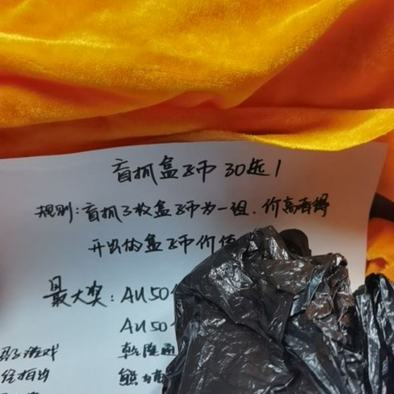 盲抓盒子币 30选1
规则:盲抓3枚盒子币为一组.价高者得
开出的盒子币价值
最大奖:AU50
AU50
乾隆通
游戏
熊